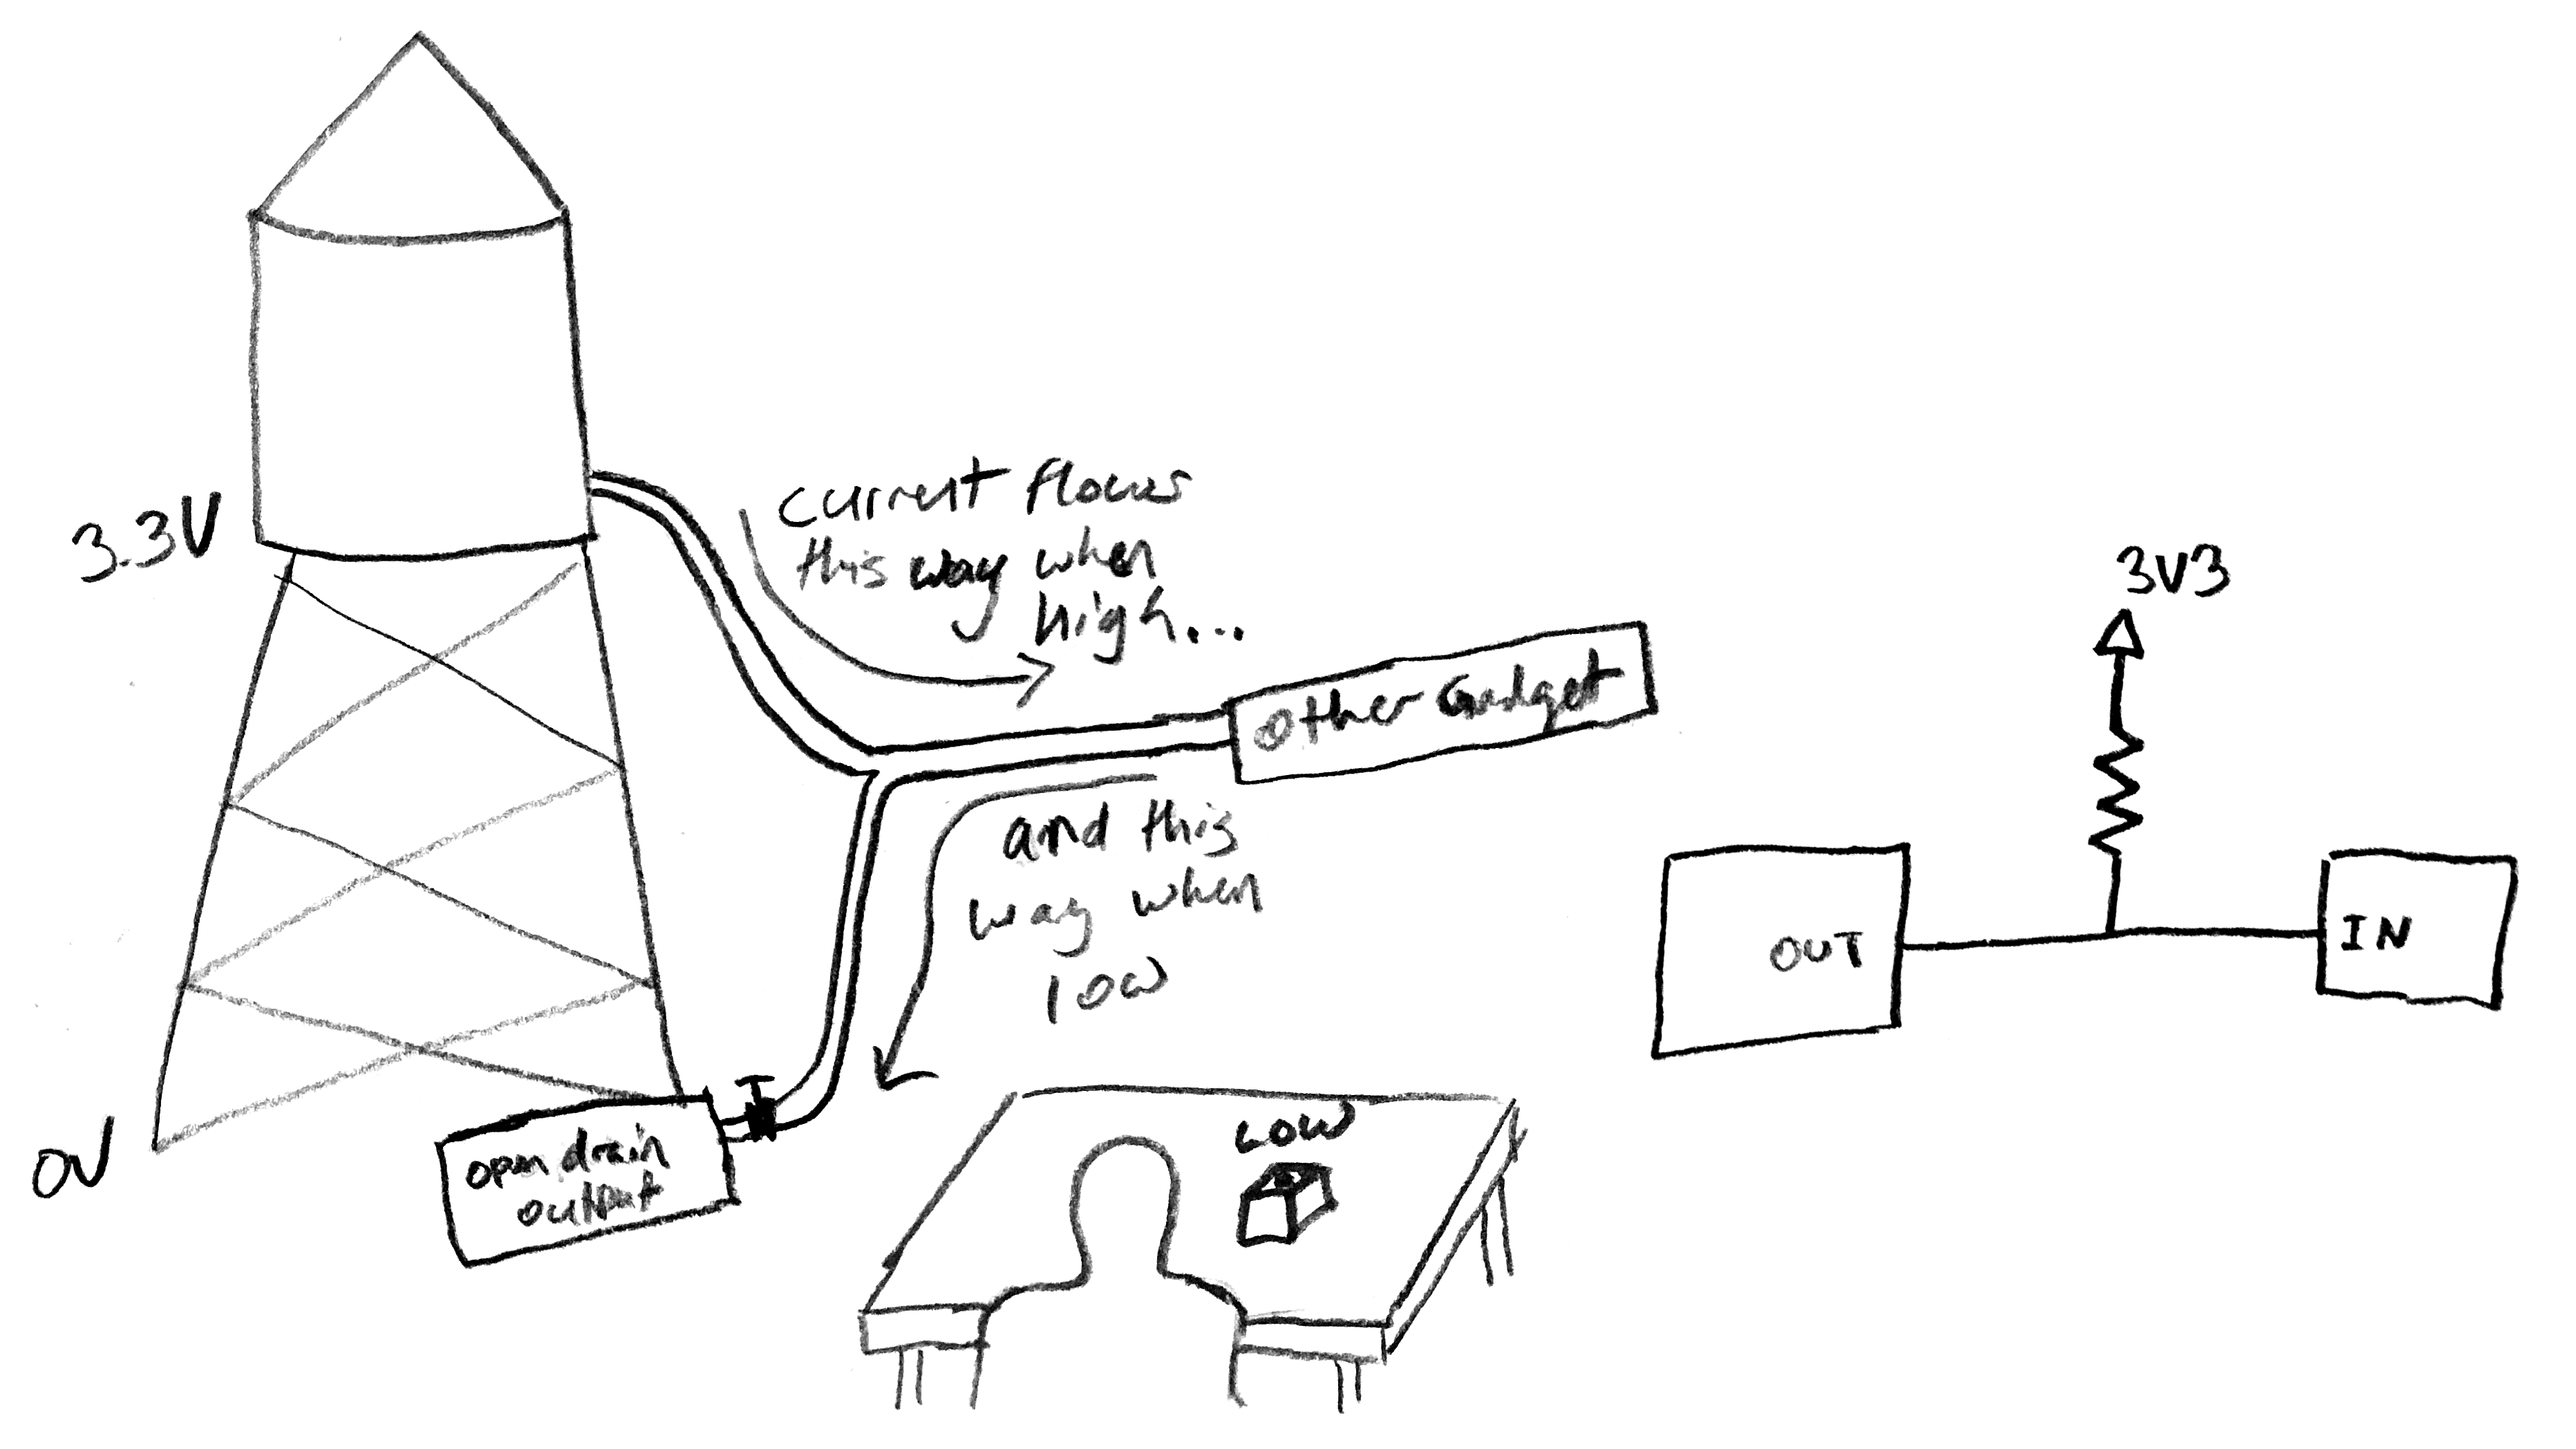 3.3V
0V
current flows
this way when
high...
Other Gadget
and this
way when
low
open drain
output
LOW
3V3
OUT
IN